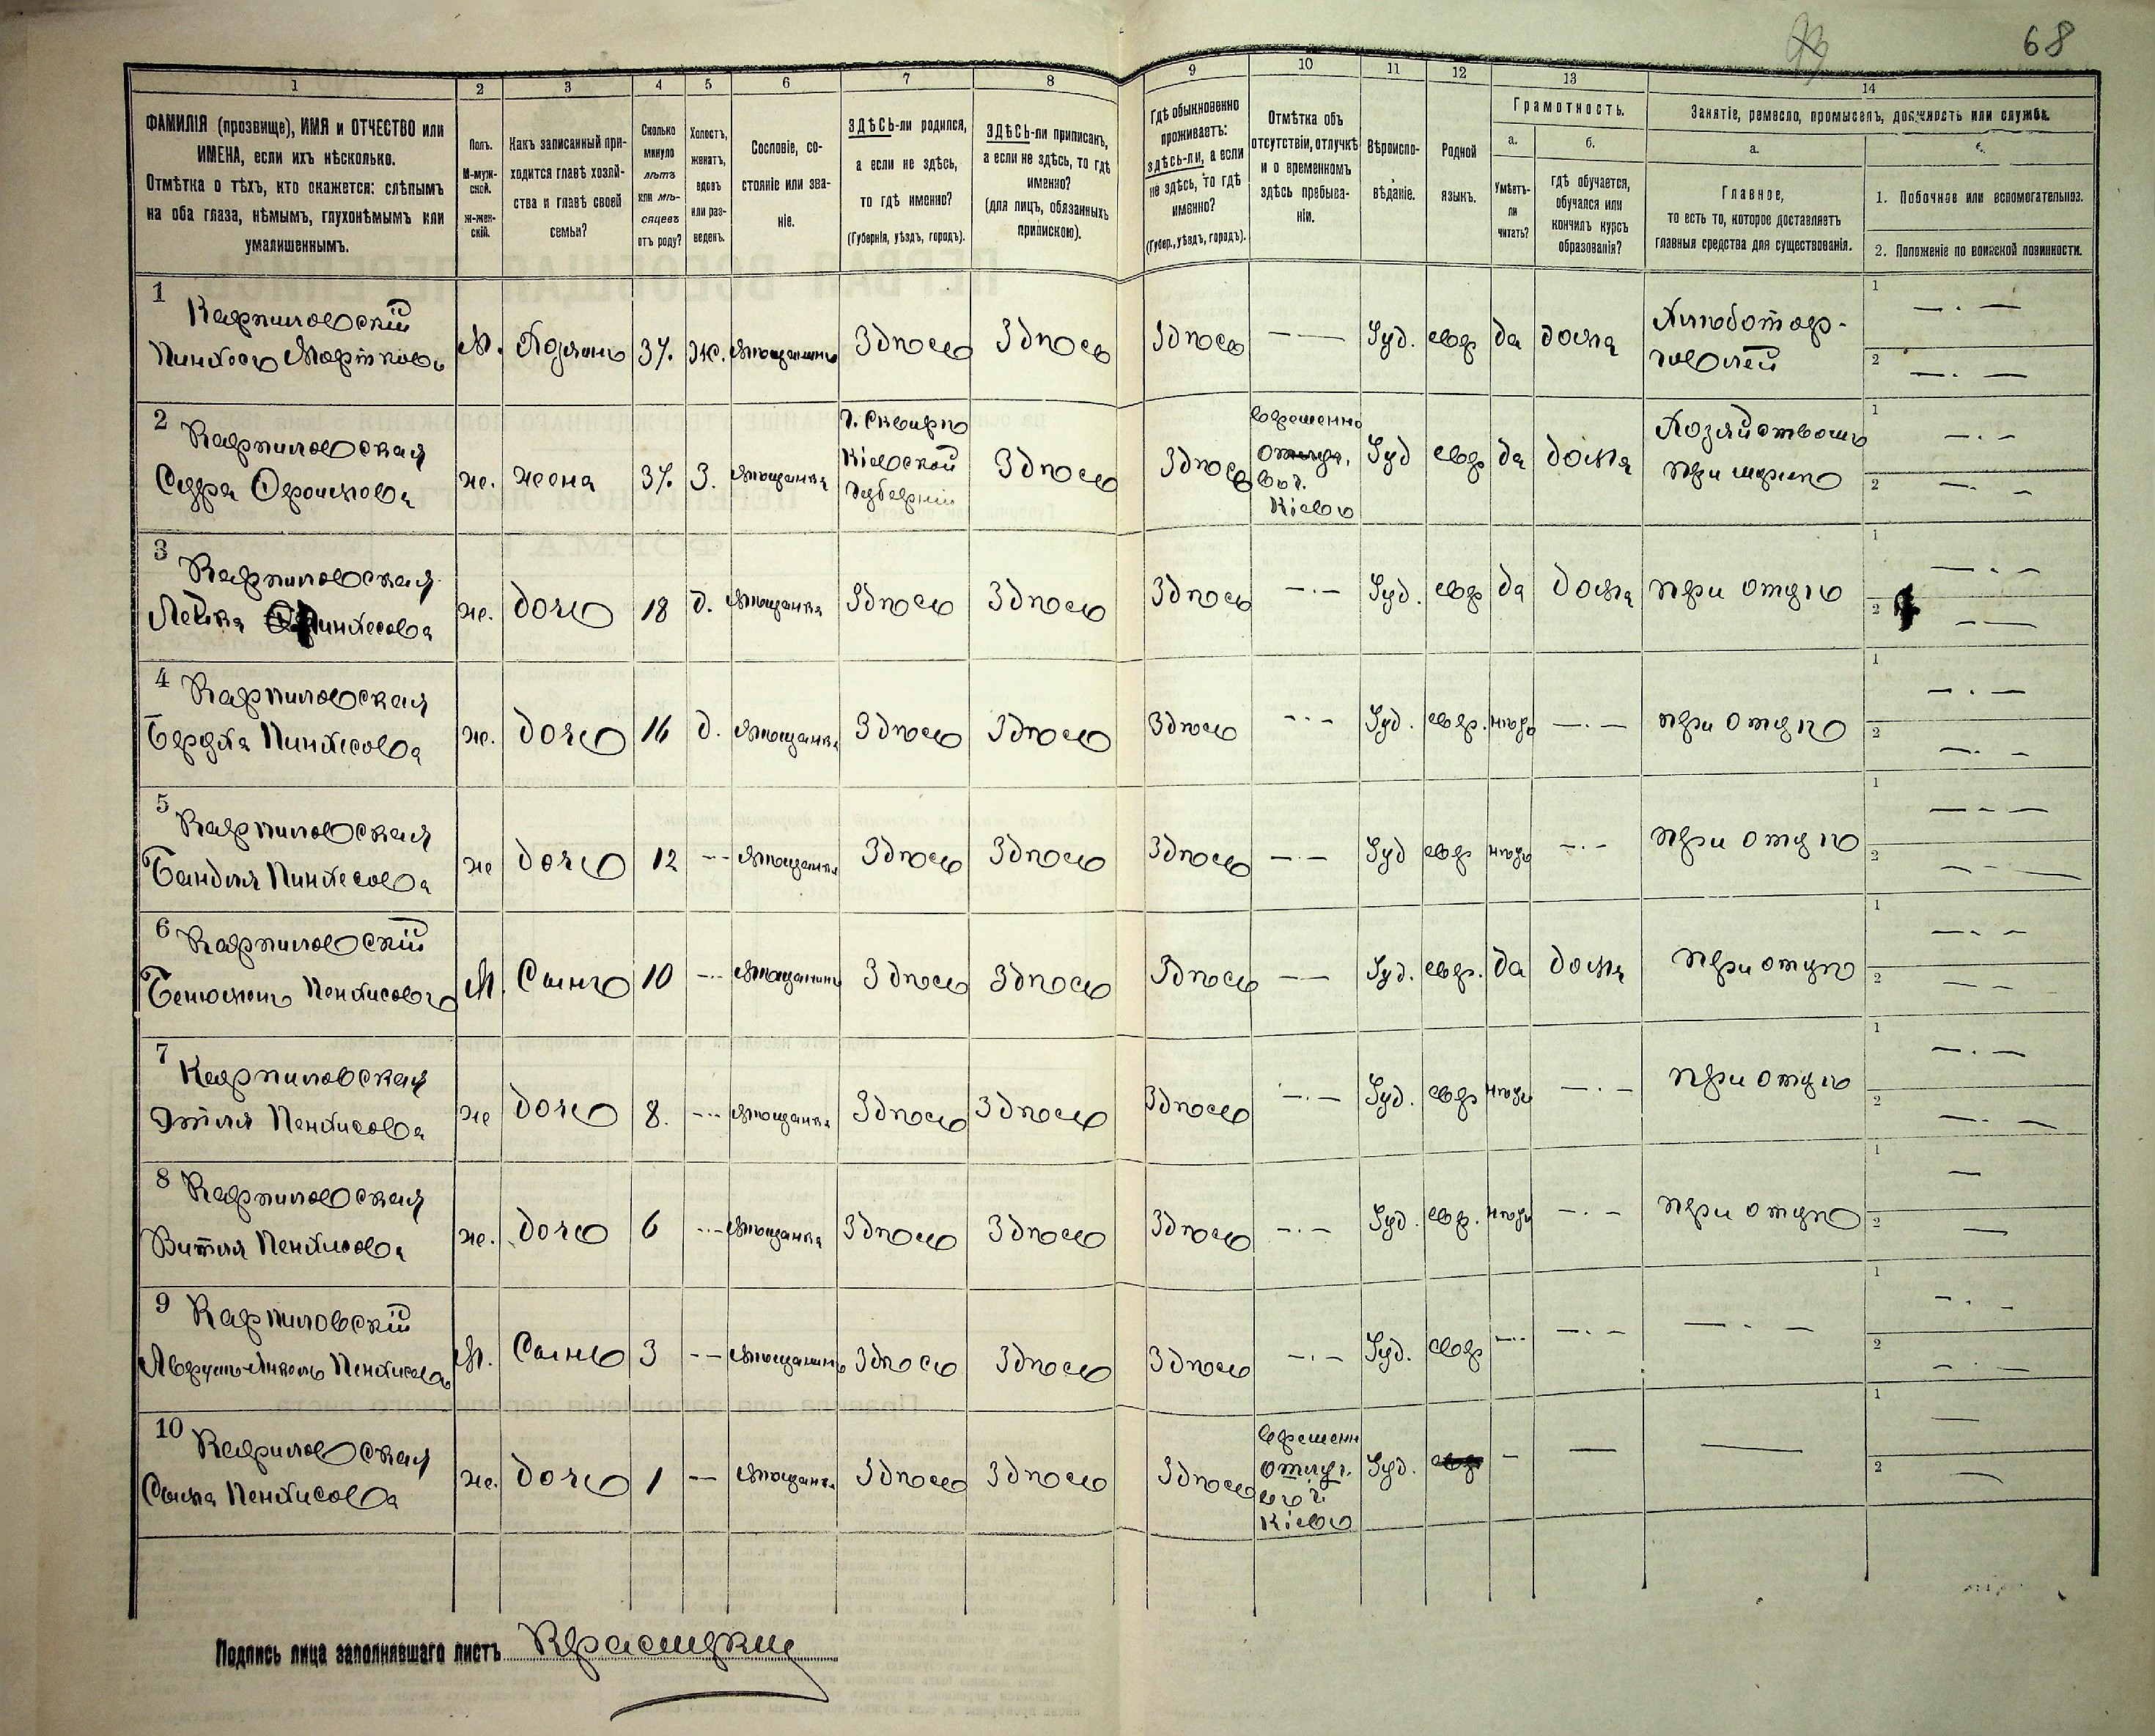 68
1 2 3 4 5 6 7 8 9 10 11 12 13 14
ФАМИЛІЯ (прозвище), ИМЯ и ОТЧЕСТВО или
ИМЕНА, если ихъ нѣсколько.
Отмѣтка о тѣхъ, кто окажется: слѣпымъ
на оба глаза, нѣмымъ, глухонѣмымъ или
умалишеннымъ.
Полъ.
М-муж-
ской.
ж-жен-
скій.
Какъ записанный при-
ходится главѣ хозяй-
ства и главѣ своей
семьи?
Сколько
минуло
лѣтъ
или мѣ-
сяцевъ
отъ роду?
Холостъ,
женатъ,
вдовъ
или раз-
веденъ.
Сословіе, со-
стояніе или зва-
ніе.
ЗДѢСЬ-ли родился,
а если не здѣсь,
то гдѣ именно?
(Губернія, уѣздъ, городъ).
ЗДѢСЬ-ли приписанъ,
а если не здѣсь, то гдѣ
именно?
(для лицъ, обязанныхъ
припискою).
Гдѣ обыкновенно
проживаетъ:
здѣсь-ли, а если
не здѣсь, то гдѣ
именно?
(Губер., уѣздъ, городъ).
Отмѣтка объ
отсутствіи, отлучкѣ
и о временномъ
здѣсь пребыва-
ніи.
Вѣроиспо-
вѣданіе.
Родной
языкъ.
Грамотность.
а.
Умѣетъ-
ли
читать?
б.
гдѣ обучается,
обучался или
кончилъ курсъ
образованія?
Занятіе, ремесло, промыселъ, должность или служба.
а.
Главное,
то есть то, которое доставляетъ
главныя средства для существованія.
1. Побочное или вспомогательное.
2. Положеніе по воинской повинности.
1 Карпиловскій
Пинхесъ Мортковъ М. Хозяинъ 37. Ж. мѣщанинъ Здѣсь Здѣсь Здѣсь — — Іуд. евр да дома Хлѣботор-
говлей 1 — . — 2 — . —
2 Карпиловская
Сура Сроимова же. жена 37. З. мѣщанка г. Сквирѣ
Кіевской
губерніи Здѣсь Здѣсь временно
отлуч.
въ г.
Кіевѣ Іуд евр да дома Хозяйствомъ
при мужѣ 1 — . — 2 — . —
3 Карпиловская
Лейка Пинхесова же. дочь 18 д. мѣщанка Здѣсь Здѣсь Здѣсь — . — Іуд. евр да дома при отцѣ 1 — . — 2 — —
4 Карпиловская
Пинхесова же. дочь 16 д. мѣщанка Здѣсь Здѣсь Здѣсь — . — Іуд. евр. — . — при отцѣ 1 — . — 2 — . —
5 Карпиловская
Бандля Пинхесова же дочь 12 — — мѣщанка Здѣсь Здѣсь Здѣсь — . — Іуд евр — . — при отцѣ 1 — . — 2 — . —
6 Карпиловскій
Пенхисовъ М. Сынъ 10 — — мѣщанинъ Здѣсь Здѣсь Здѣсь — — Іуд. евр. да дома при отцѣ 1 — . — 2 — —
7 Карпиловская
Этля Пенхисова же дочь 8. — — мѣщанка Здѣсь Здѣсь Здѣсь — . — Іуд. евр — . — при отцѣ 1 — . — 2 — . —
8 Карпиловская
Витля Пенхисова же. дочь 6 — — мѣщанка Здѣсь Здѣсь Здѣсь — . — Іуд. евр. — . — при отцѣ 1 — 2 —
9 Карпиловскій
Пенхисовъ М. Сынъ 3 — — мѣщанинъ Здѣсь Здѣсь Здѣсь — . — Іуд. евр — — . — — . — 1 — . — 2 — . —
10 Карпиловская
Сыма Пенхисова же. дочь 1 — мѣщанка Здѣсь Здѣсь Здѣсь временн
отлуч.
въ г.
Кіевѣ Іуд. евр — — — 1 — 2 —
Подпись лица заполнявшаго листъ